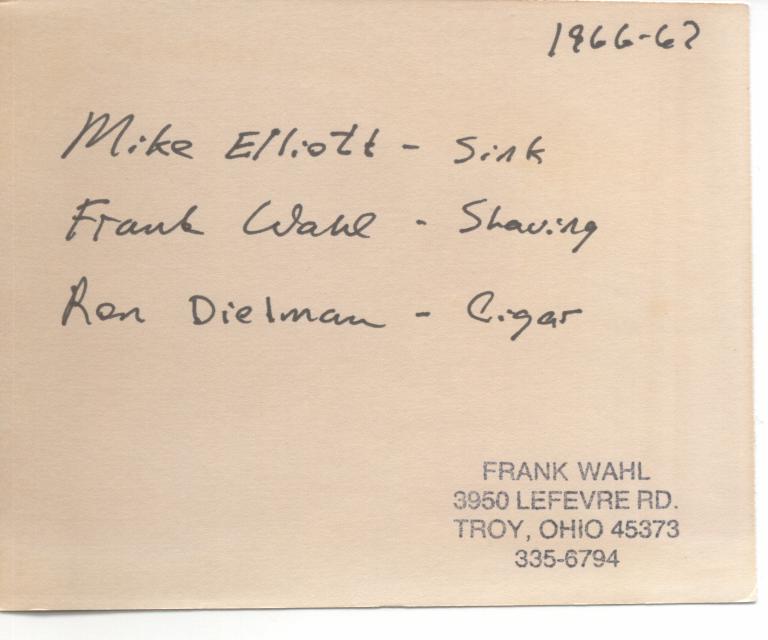 1966-67
Mike Elliott - Sink
Frank Wahl - Shaving
Ron Dielman - Cigar
FRANK WAHL
3950 LEFEVRE RD.
TROY, OHIO 45373
335-6794